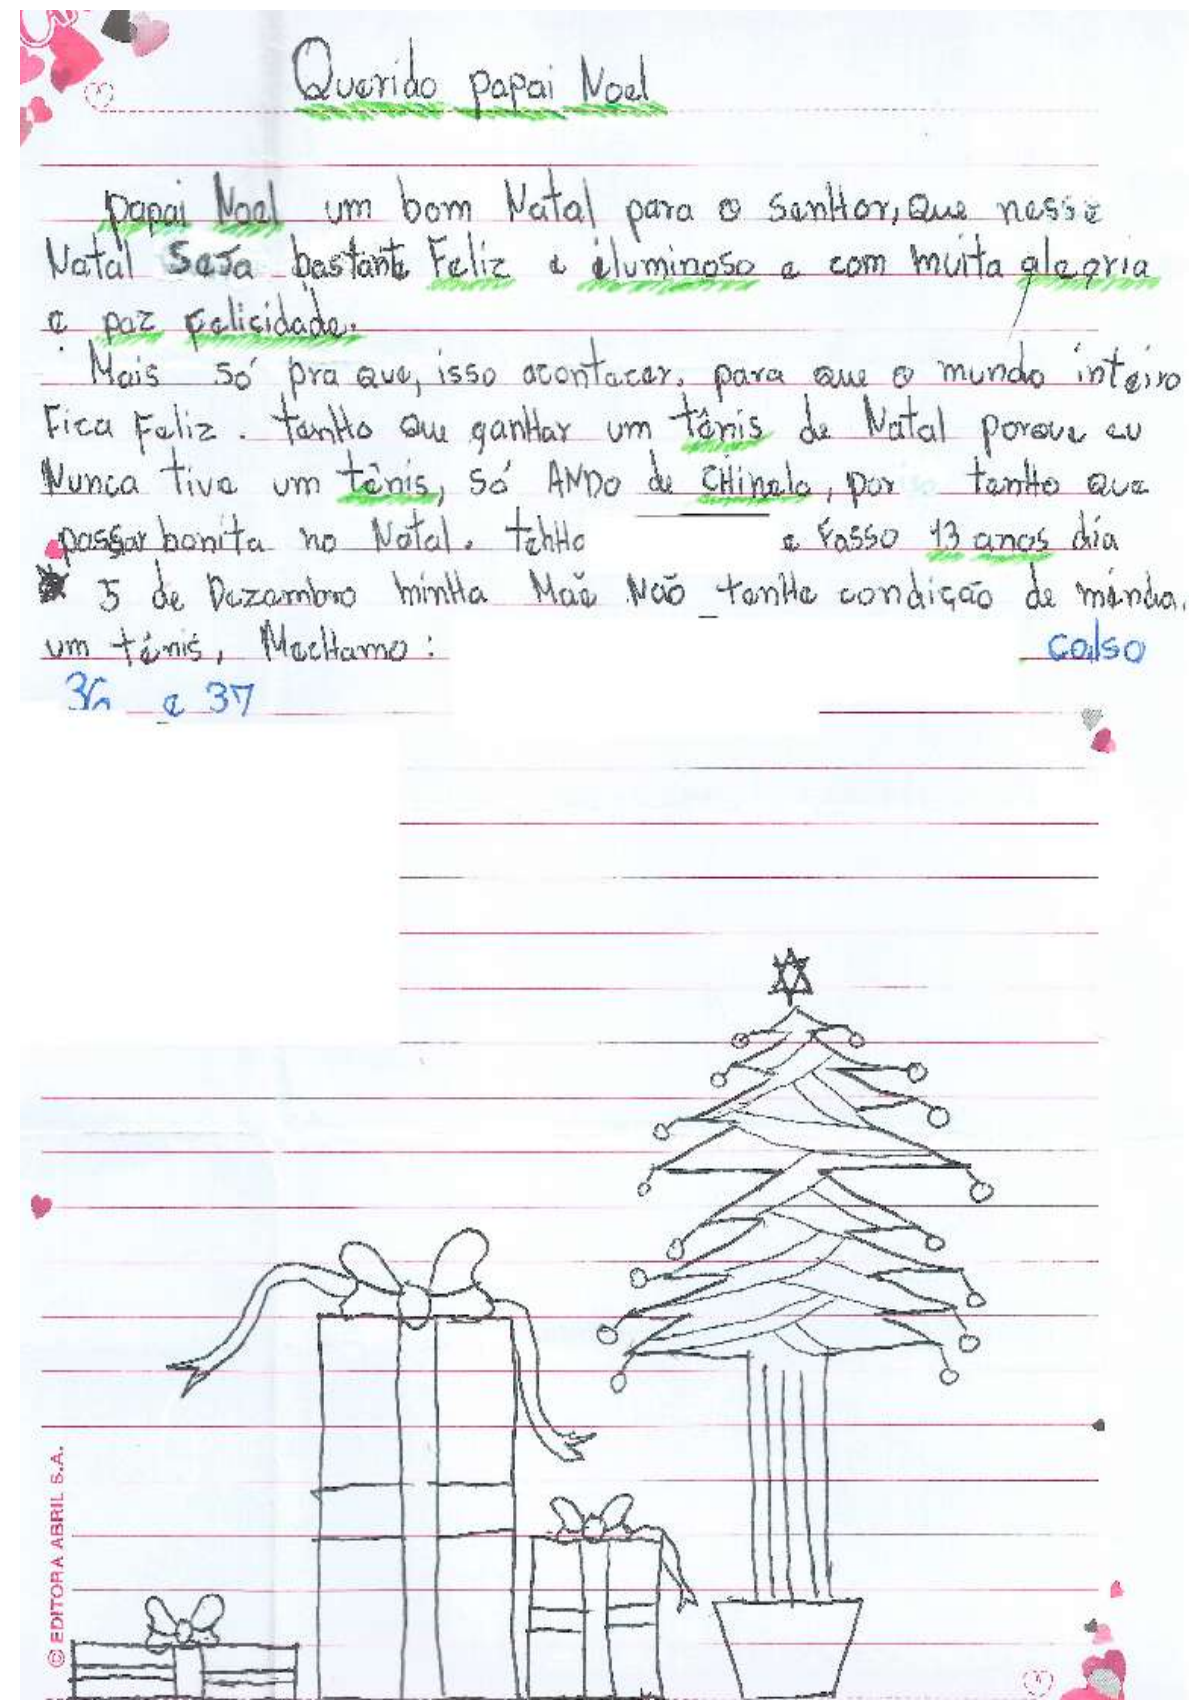 Querido papai Noel
papai Noel um bom Natal para o senHor, que nesse
Natal seja bastante Feliz e iluminoso e com muita alegria
e paz felicidade.
Mais só pra que, isso acontecer. para que o mundo inteiro
Fica Feliz. tenHo que ganHar um tênis de Natal porque eu
Nunca tive um tênis, só ANDo de CHinelo, por tenHo que
passar bonita no Natal. tenHo e Fasso 13 anos dia
5 de Dezembro minHa Maẽ Não tenHe condição de mánda.
um tênis, MecHamo: calso
36 e 37
© EDITORA ABRIL S.A.